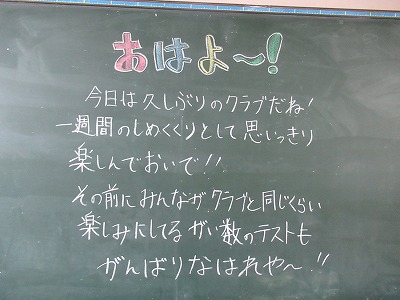 おはよ〜!
今日は久しぶりのクラブだね!
一週間のしめくくりとして思いっきり
楽しんでおいで!!
その前にみんながクラブと同じくらい
楽しみにしてるがい数のテストも
がんばりなはれや〜!!